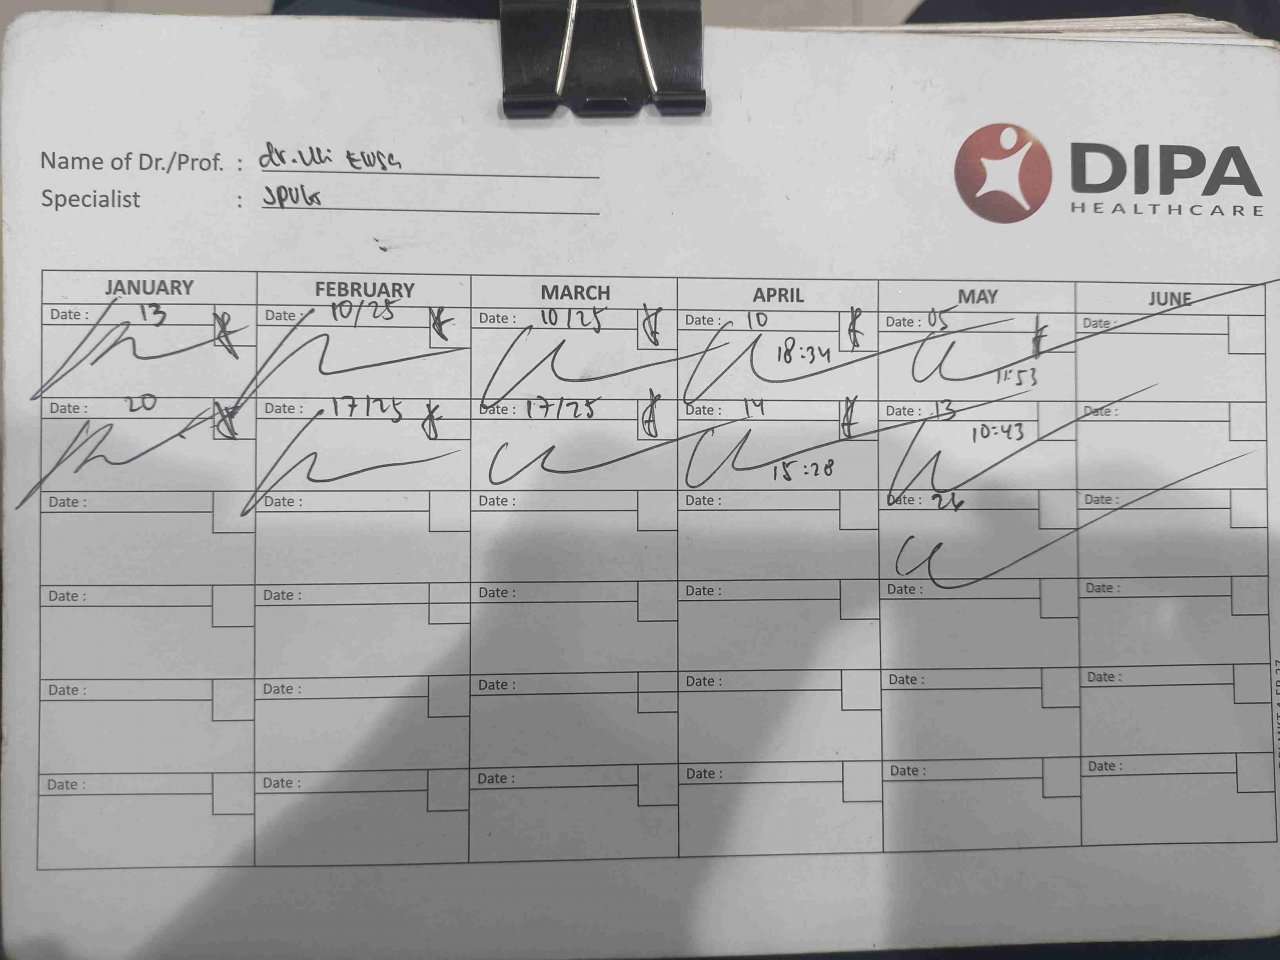 DIPA
HEALTHCARE
Name of Dr./Prof. : dr.
Specialist :
JANUARY FEBRUARY MARCH APRIL MAY JUNE
Date : 13 Date : 10/25 Date : 10/25 Date : 10 Date : 05 Date :
18:34 11:53
Date : 20 Date : 17/25 Date : 17/25 Date : 14 Date : 13 Date :
15:28 10:43
Date : Date : Date : Date : Date : 26 Date :
Date : Date : Date : Date : Date : Date :
Date : Date : Date : Date : Date : Date :
Date : Date : Date : Date : Date : Date :